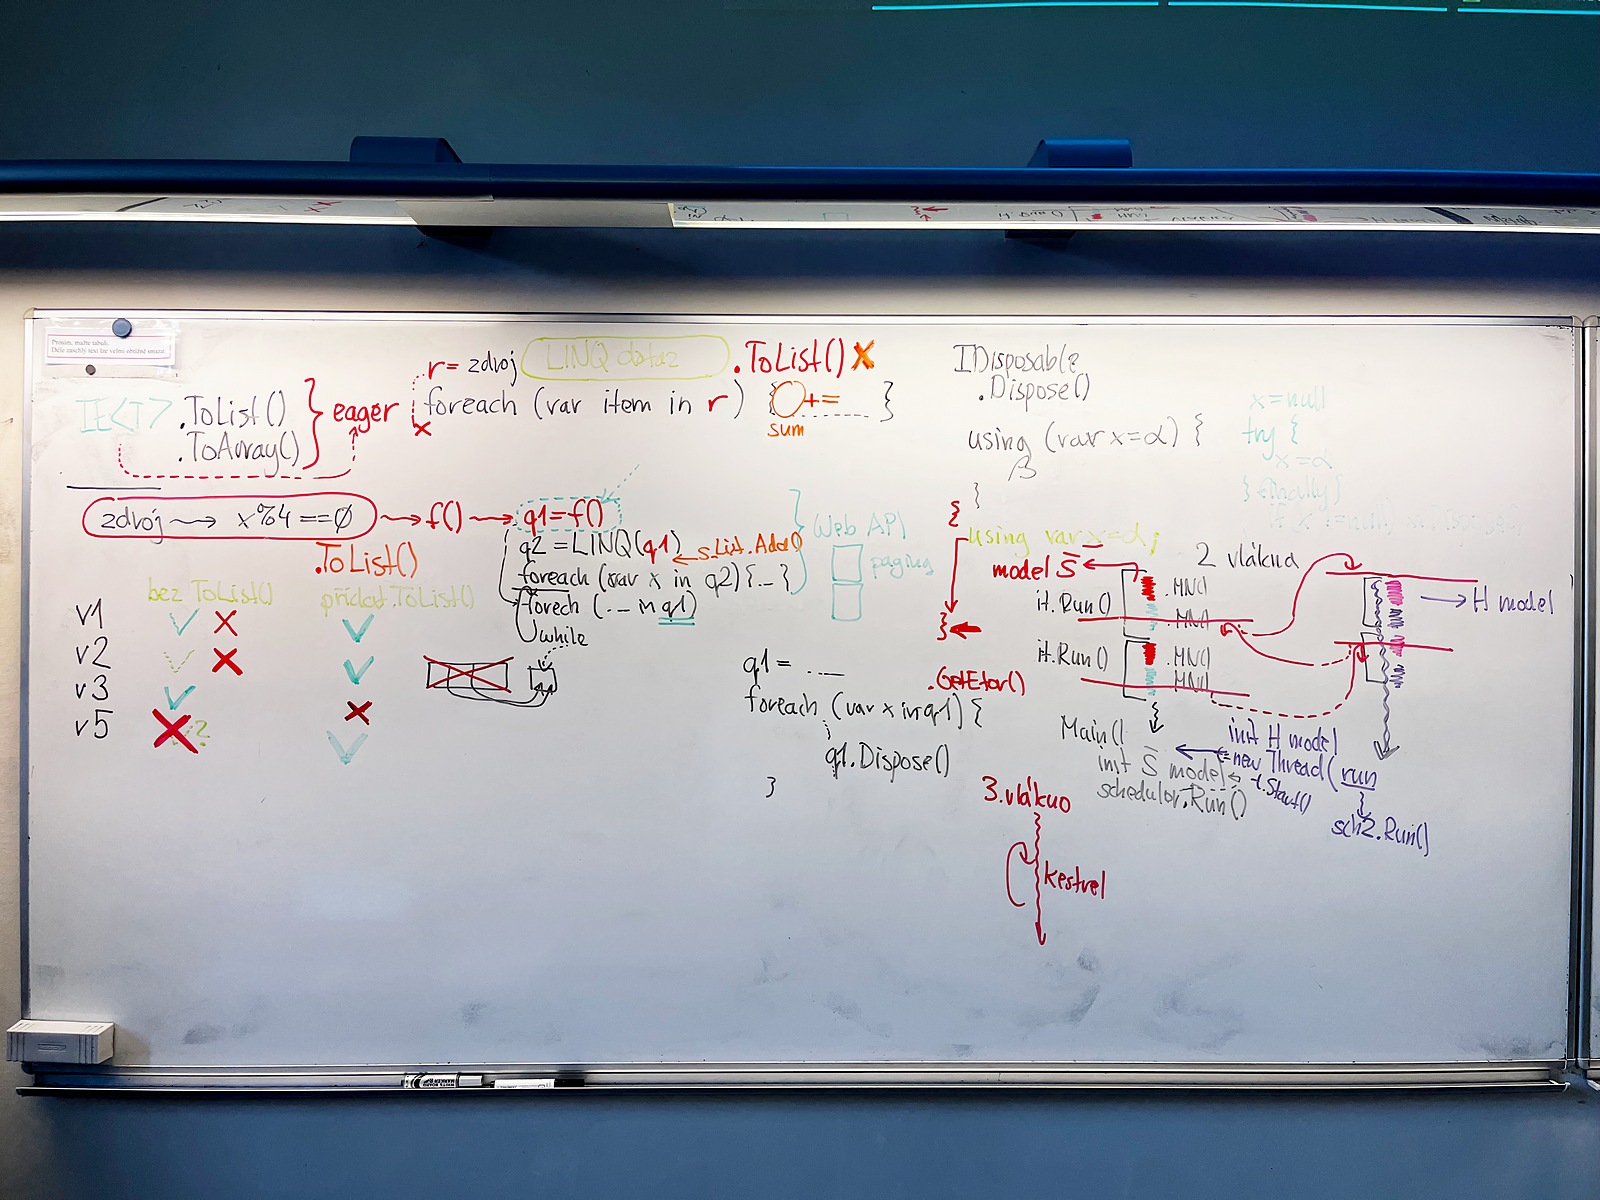 Prosím, mažte tabuli.
Déle zaschlý text lze velmi obtížně smazat.
IE<T> .ToList()
.ToArray()
} eager
r = zdroj LINQ dotaz .ToList() X
foreach (var item in r) { += }
sum
x
zdroj → x%4==0 → f() → q1=f()
q2 = LINQ(q1) ← s.List.Add()
foreach (var x in q2) {...}
forech (... in q1)
while
Web API
paging
.ToList()
bez ToList()
přidat .ToList()
v1 ✓ X ✓
v2 ✓ X ✓
v3 ✓ X
v5 X ? ✓
q1 = ...
foreach (var x in q1) {
q1.Dispose()
}
.GetEtor()
IDisposable
.Dispose()
using (var x=α) {
β
}
x=null
try {
x=α
} finally {
{
using var x=α;
}
model S
2 vlákna
it.Run()
.MN()
.MN()
it.Run()
.MN()
.MN()
H model
Main()
init S model
schedulor.Run()
init H model
t=new Thread(run
t.Start()
sch2.Run()
3.vlákno
kestrel